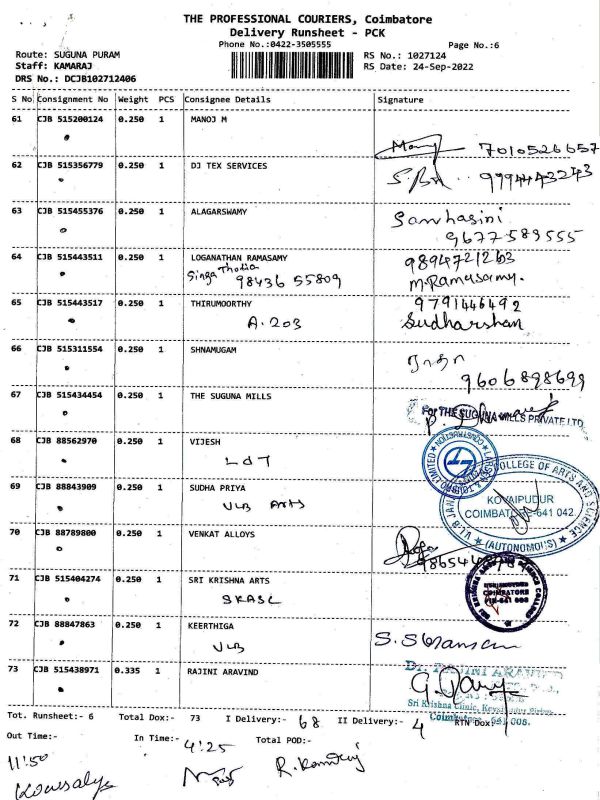 THE PROFESSIONAL COURIERS, Coimbatore
Delivery Runsheet - PCK
Phone No.:0422-3505555 Page No.:6
Route: SUGUNA PURAM RS No.: 1027124
Staff: KAMARAJ RS Date: 24-Sep-2022
DRS No.: DCJB102712406
S No Consignment No Weight PCS Consignee Details Signature
61 CJB 515200124 0.250 1 MANOJ M
7010526657
62 CJB 515356779 0.250 1 DJ TEX SERVICES
9994443243
63 CJB 515455376 0.250 1 ALAGARSWAMY
9677589555
64 CJB 515443511 0.250 1 LOGANATHAN RAMASAMY 9894721263
Singa Thotia 98436 55809 M.Ramasamy.
65 CJB 515443517 0.250 1 THIRUMOORTHY 9791446492
A.203 Sudharshan
66 CJB 515311554 0.250 1 SHNAMUGAM
9606898699
67 CJB 515434454 0.250 1 THE SUGUNA MILLS
For THE SUGUNA MILLS PRIVATE LTD
68 CJB 88562970 0.250 1 VIJESH
L&T
69 CJB 88843909 0.250 1 SUDHA PRIYA
VLB Arts
COLLEGE OF ARTS AND SCIENCE
KOVAIPUDUR
COIMBATORE-641 042.
(AUTONOMOUS)
70 CJB 88789800 0.250 1 VENKAT ALLOYS
71 CJB 515404274 0.250 1 SRI KRISHNA ARTS
SKASC
COIMBATORE
72 CJB 88847863 0.250 1 KEERTHIGA
VLB
73 CJB 515438971 0.335 1 RAJINI ARAVIND
Dr. RAJINI ARAVIND
Sri Krishna Clinic,
Coimbatore - 641 008.
Tot. Runsheet:- 6 Total Dox:- 73 I Delivery:- 68 II Delivery:- 4 RTN Dox:- 1
Out Time:- In Time:- 4:25 Total POD:-
11:50
Kowsalya R. Kamaraj